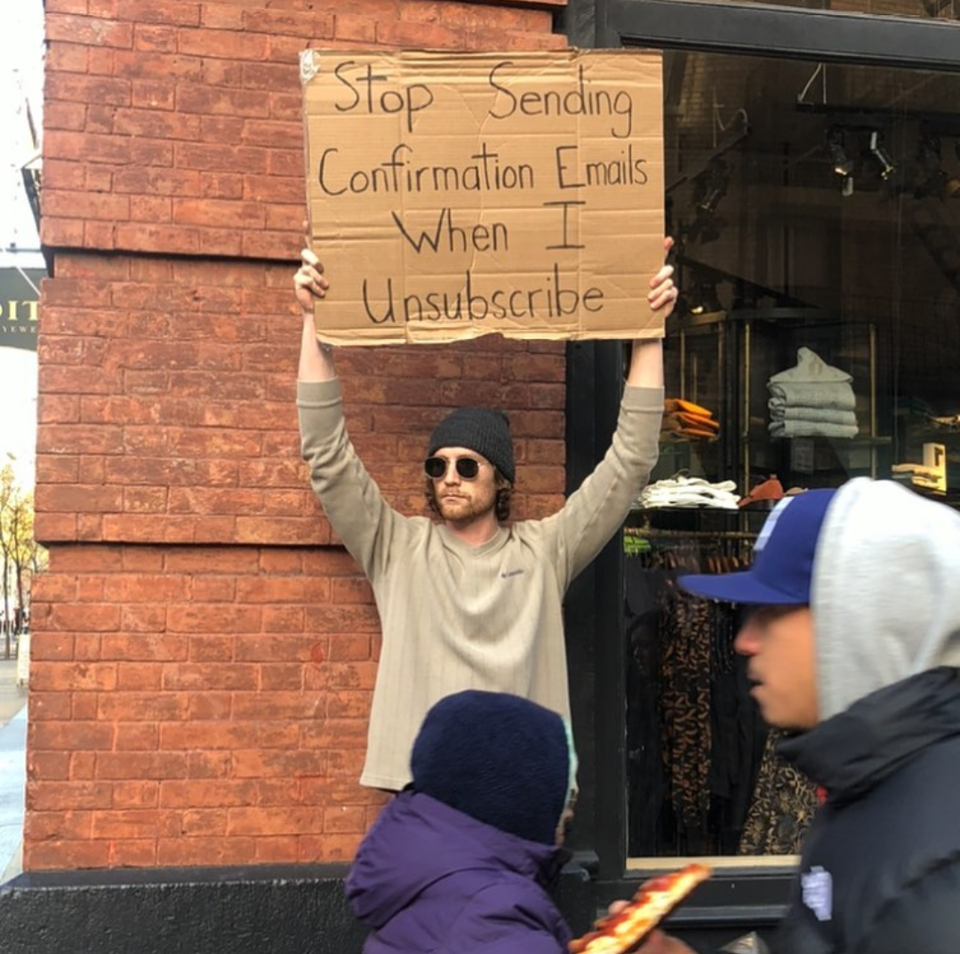 Stop Sending
Confirmation Emails
When I
Unsubscribe